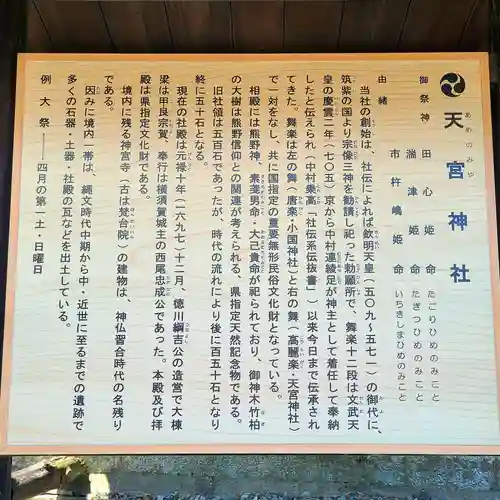 天宮神社
あめのみや
御祭神 田心姫命 たごりひめのみこと
湍津姫命 たぎつひめのみこと
市杵嶋姫命 いちきしまひめのみこと
由緒
当社の創始は、社伝によれば欽明天皇（五〇九～五七一）の御代に、
筑紫の国より宗像三神を勧請し祀った勅願所で、舞楽十二段は文武天
皇の慶雲二年（七〇五）京から中村連綾足が神主として着任して奉納
したと伝えられ（中村乘高「社伝系伝抜書」）以来今日まで伝承され
てきた。舞楽は左の舞（唐楽・小国神社）と右の舞（高麗楽・天宮神社）
で一対をなし、共に国指定の重要無形民俗文化財となっている。
相殿には熊野神、素戔男命・大己貴命が祀られており、御神木竹柏
の大樹は熊野信仰との関連が考えられる、県指定天然記念物である。
旧社領は五百石であったが、時代の流れにより後に百五十石となり
終に五十石となる。
現在の社殿は元禄十年（一六九七）十二月、徳川綱吉公の造営で大棟
梁は甲良宗賀、奉行は横須賀城主の西尾忠成公であった。本殿及び拝
殿は県指定文化財である。
境内に残る神宮寺（古は梵台院）の建物は、神仏習合時代の名残り
である。
因みに境内一帯は、縄文時代中期から中・近世に至るまでの遺跡で
多くの石器・土器・社殿の瓦などを出土している。
例大祭――四月の第一土・日曜日